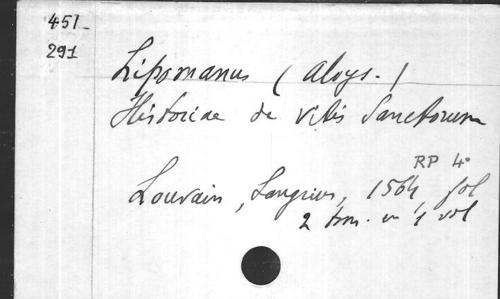 451_
291
Lipomanus (Aloys.)
Historiae de vitis Sanctorum
RP 4°
Louvain, Sangrius, 1564, fol
2 tom. en 1 vol